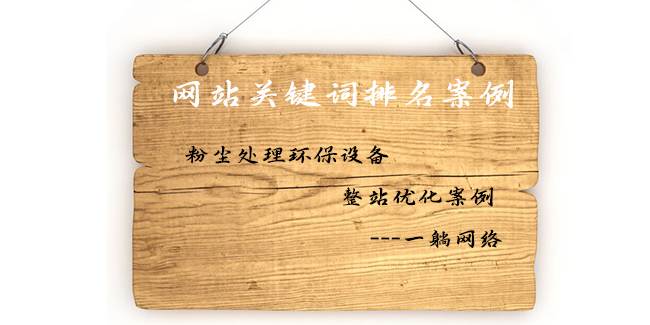 网站关键词排名案例
粉尘处理环保设备
整站优化案例
---一躺网络